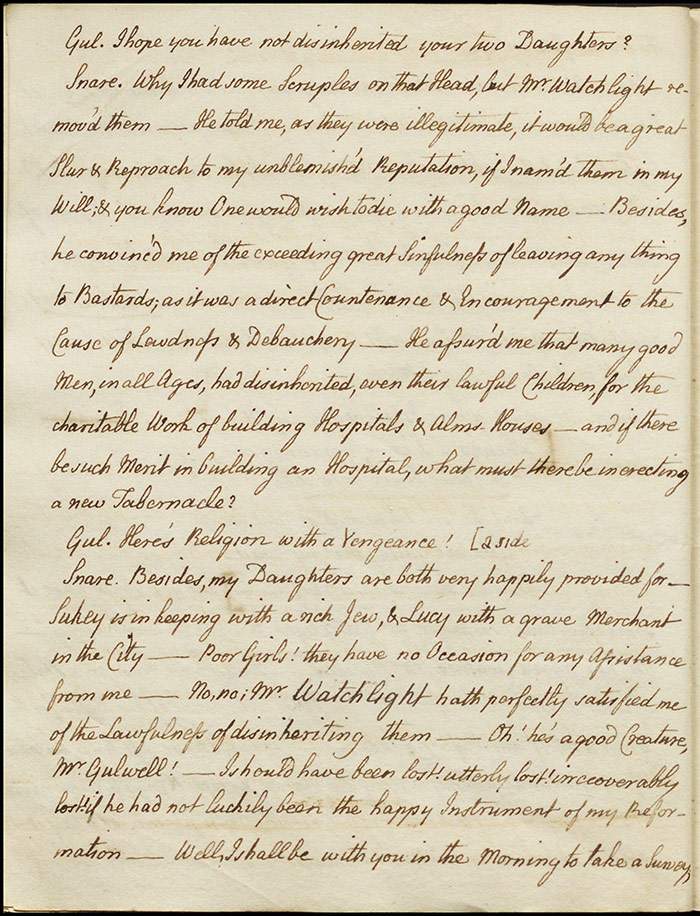 Gul. I hope you have not disinherited your two Daughters?
Snare. Why I had some Scruples on that Head, but Mr. Watchlight re-
mov'd them — He told me, as they were illegitimate, it would be a great
Slur & Reproach to my unblemish'd Reputation, if I nam'd them in my
Will; & you know One would wish to die with a good Name — Besides,
he convinc'd me of the exceeding great Sinfulneſs of leaving any thing
to Bastards; as it was a direct Countenance & Encouragement to the
Cause of Lewdneſs & Debauchery — He aſsur'd me that many good
Men, in all Ages, had disinherited, even their lawful Children, for the
charitable Work of building Hospitals & Alms-Houses — and if there
be such Merit in building an Hospital, what must there be in erecting
a new Tabernacle?
Gul. Here's Religion with a Vengeance! [aside
Snare. Besides, my Daughters are both very happily provided for —
Sukey is in keeping with a rich Jew, & Lucy with a grave Merchant
in the City — Poor Girls! they have no Occasion for any Aſsistance
from me — No, no; Mr. Watchlight hath perfectly satisfied me
of the Lawfulneſs of disinheriting them — Oh! he's a good Creature,
Mr. Gulwell! — I should have been lost! utterly lost! irrecoverably
lost! if he had not luckily been the happy Instrument of my Refor-
mation — Well, I shall be with you in the Morning to take a Survey